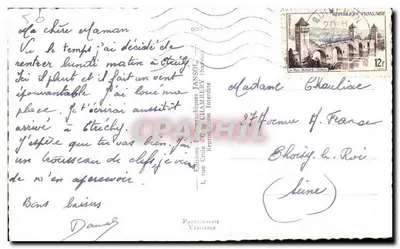 Ma chère Maman
Vu le temps j'ai décidé de
rentrer lundi matin à
Ici il pleut et il fait un vent
épouvantable J'ai loué ma
place. Je t'écrirai aussitôt
arrivé à
J'espère que tu vas bien. J'ai
un trousseau de clefs, je viens
de m'en apercevoir.
Bons baisers
Daniel
JANSOL
CHAMBERY
PHOTOGRAPHIE
VÉRITABLE
RÉPUBLIQUE FRANÇAISE
12F
Madame Chauliac
27 Avenue A. France
Choisy-le-Roi
(Seine)
CARTEFRANCE